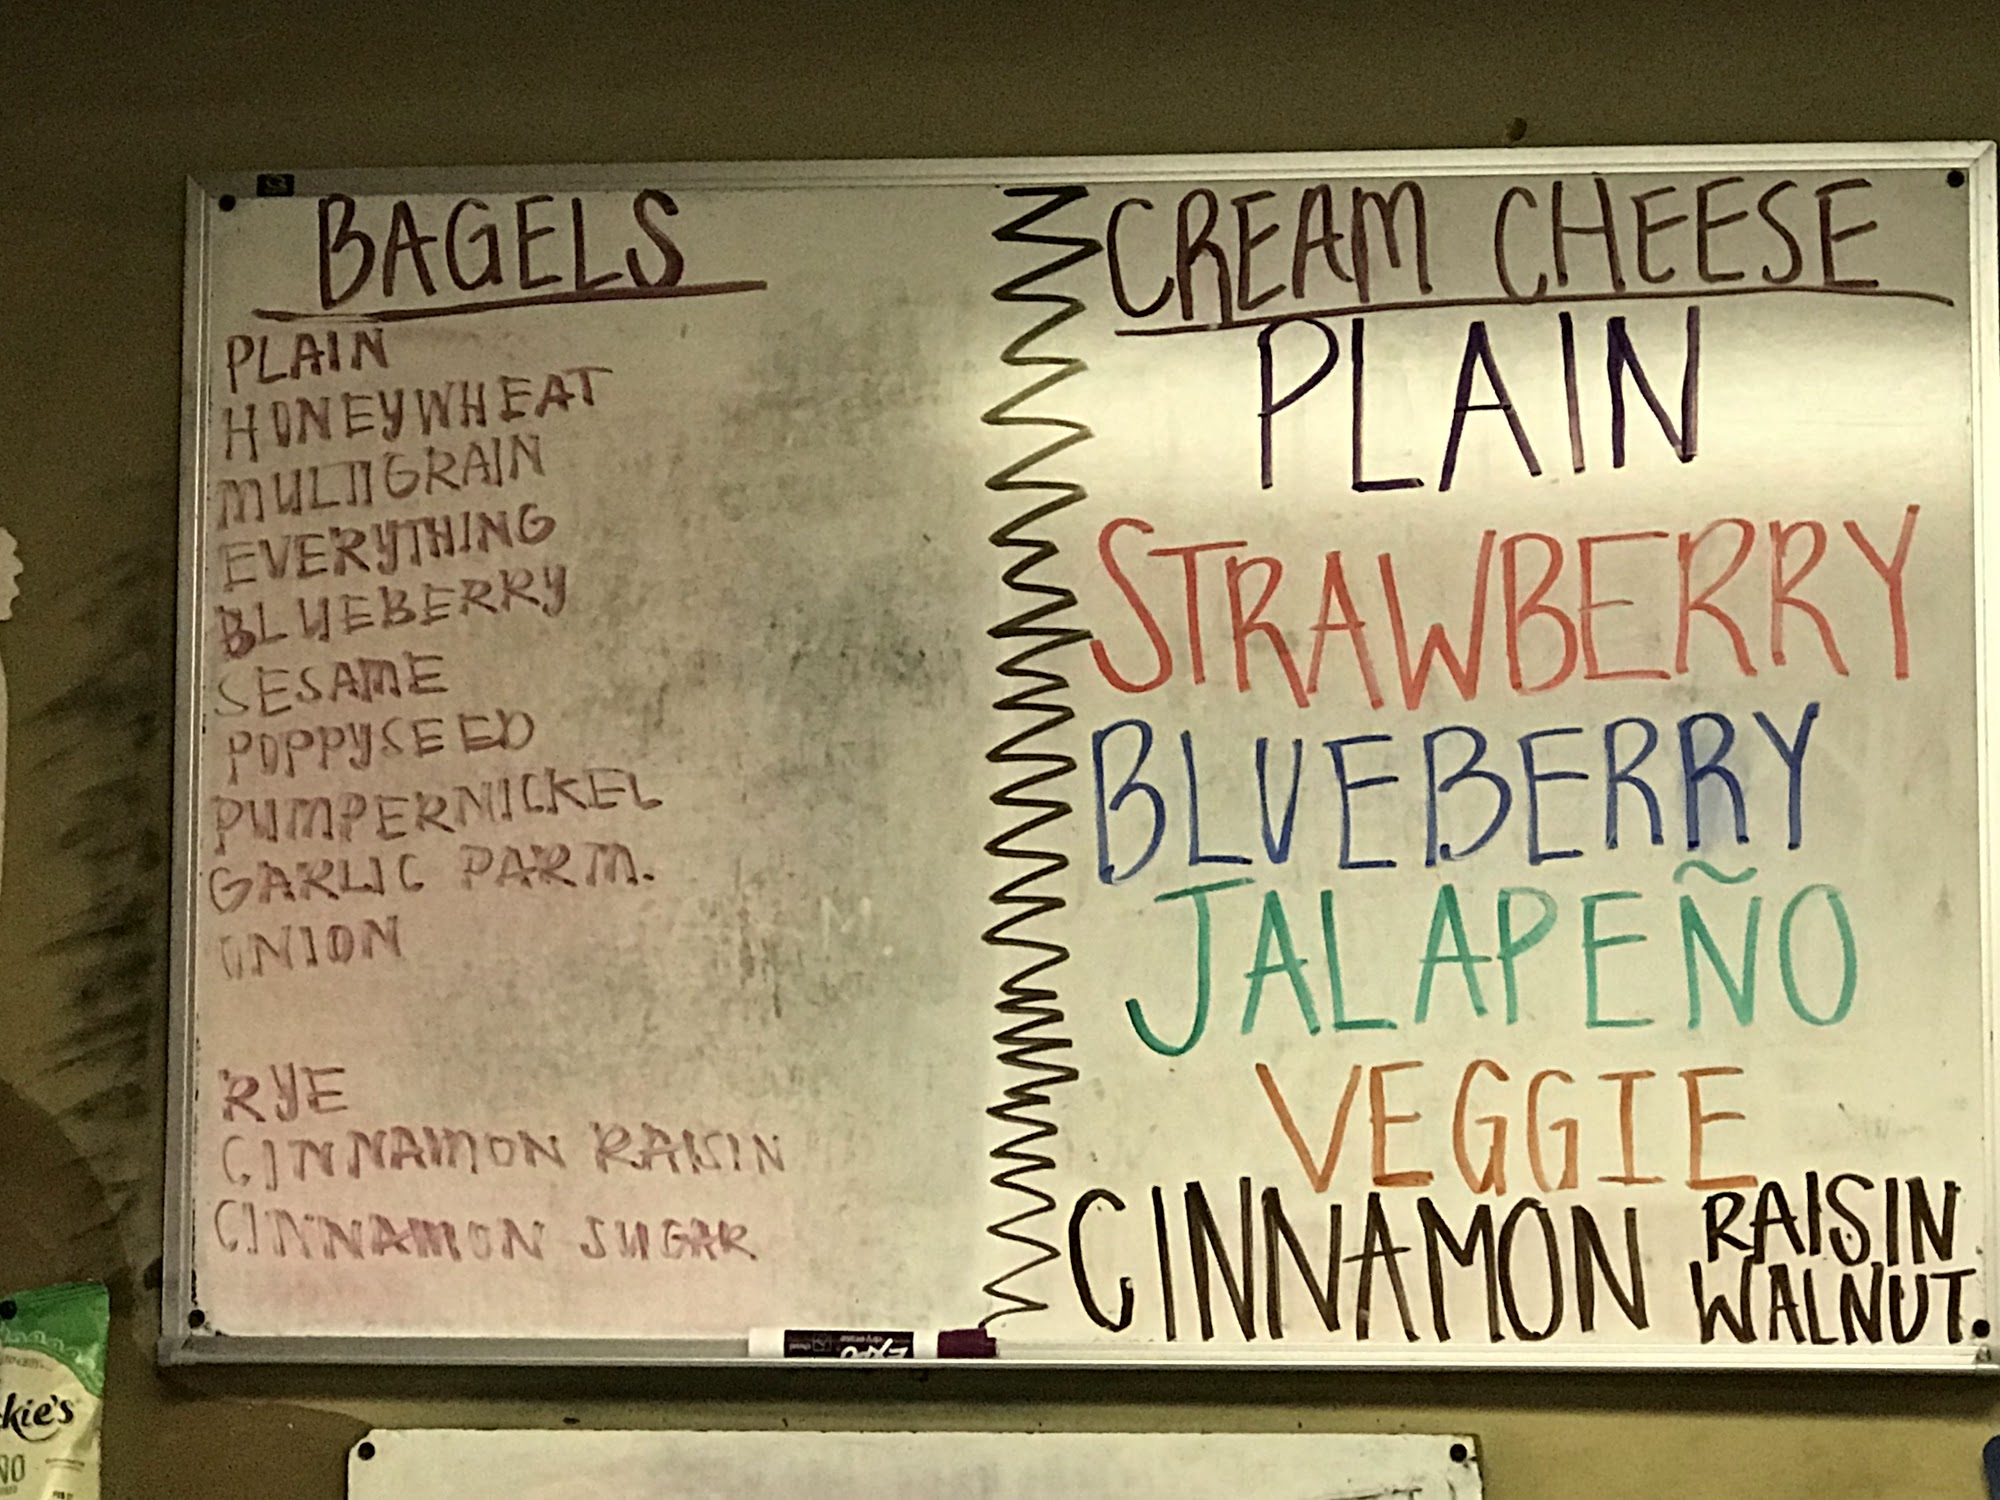 BAGELS
PLAIN
HONEYWHEAT
MULTIGRAIN
EVERYTHING
BLUEBERRY
SESAME
POPPYSEED
PUMPERNICKEL
GARLIC PARM.
ONION
RYE
CINNAMON RAISIN
CINNAMON SUGAR
CREAM CHEESE
PLAIN
STRAWBERRY
BLUEBERRY
JALAPEÑO
VEGGIE
CINNAMON RAISIN
WALNUT
EXPO
dry erase
kie's